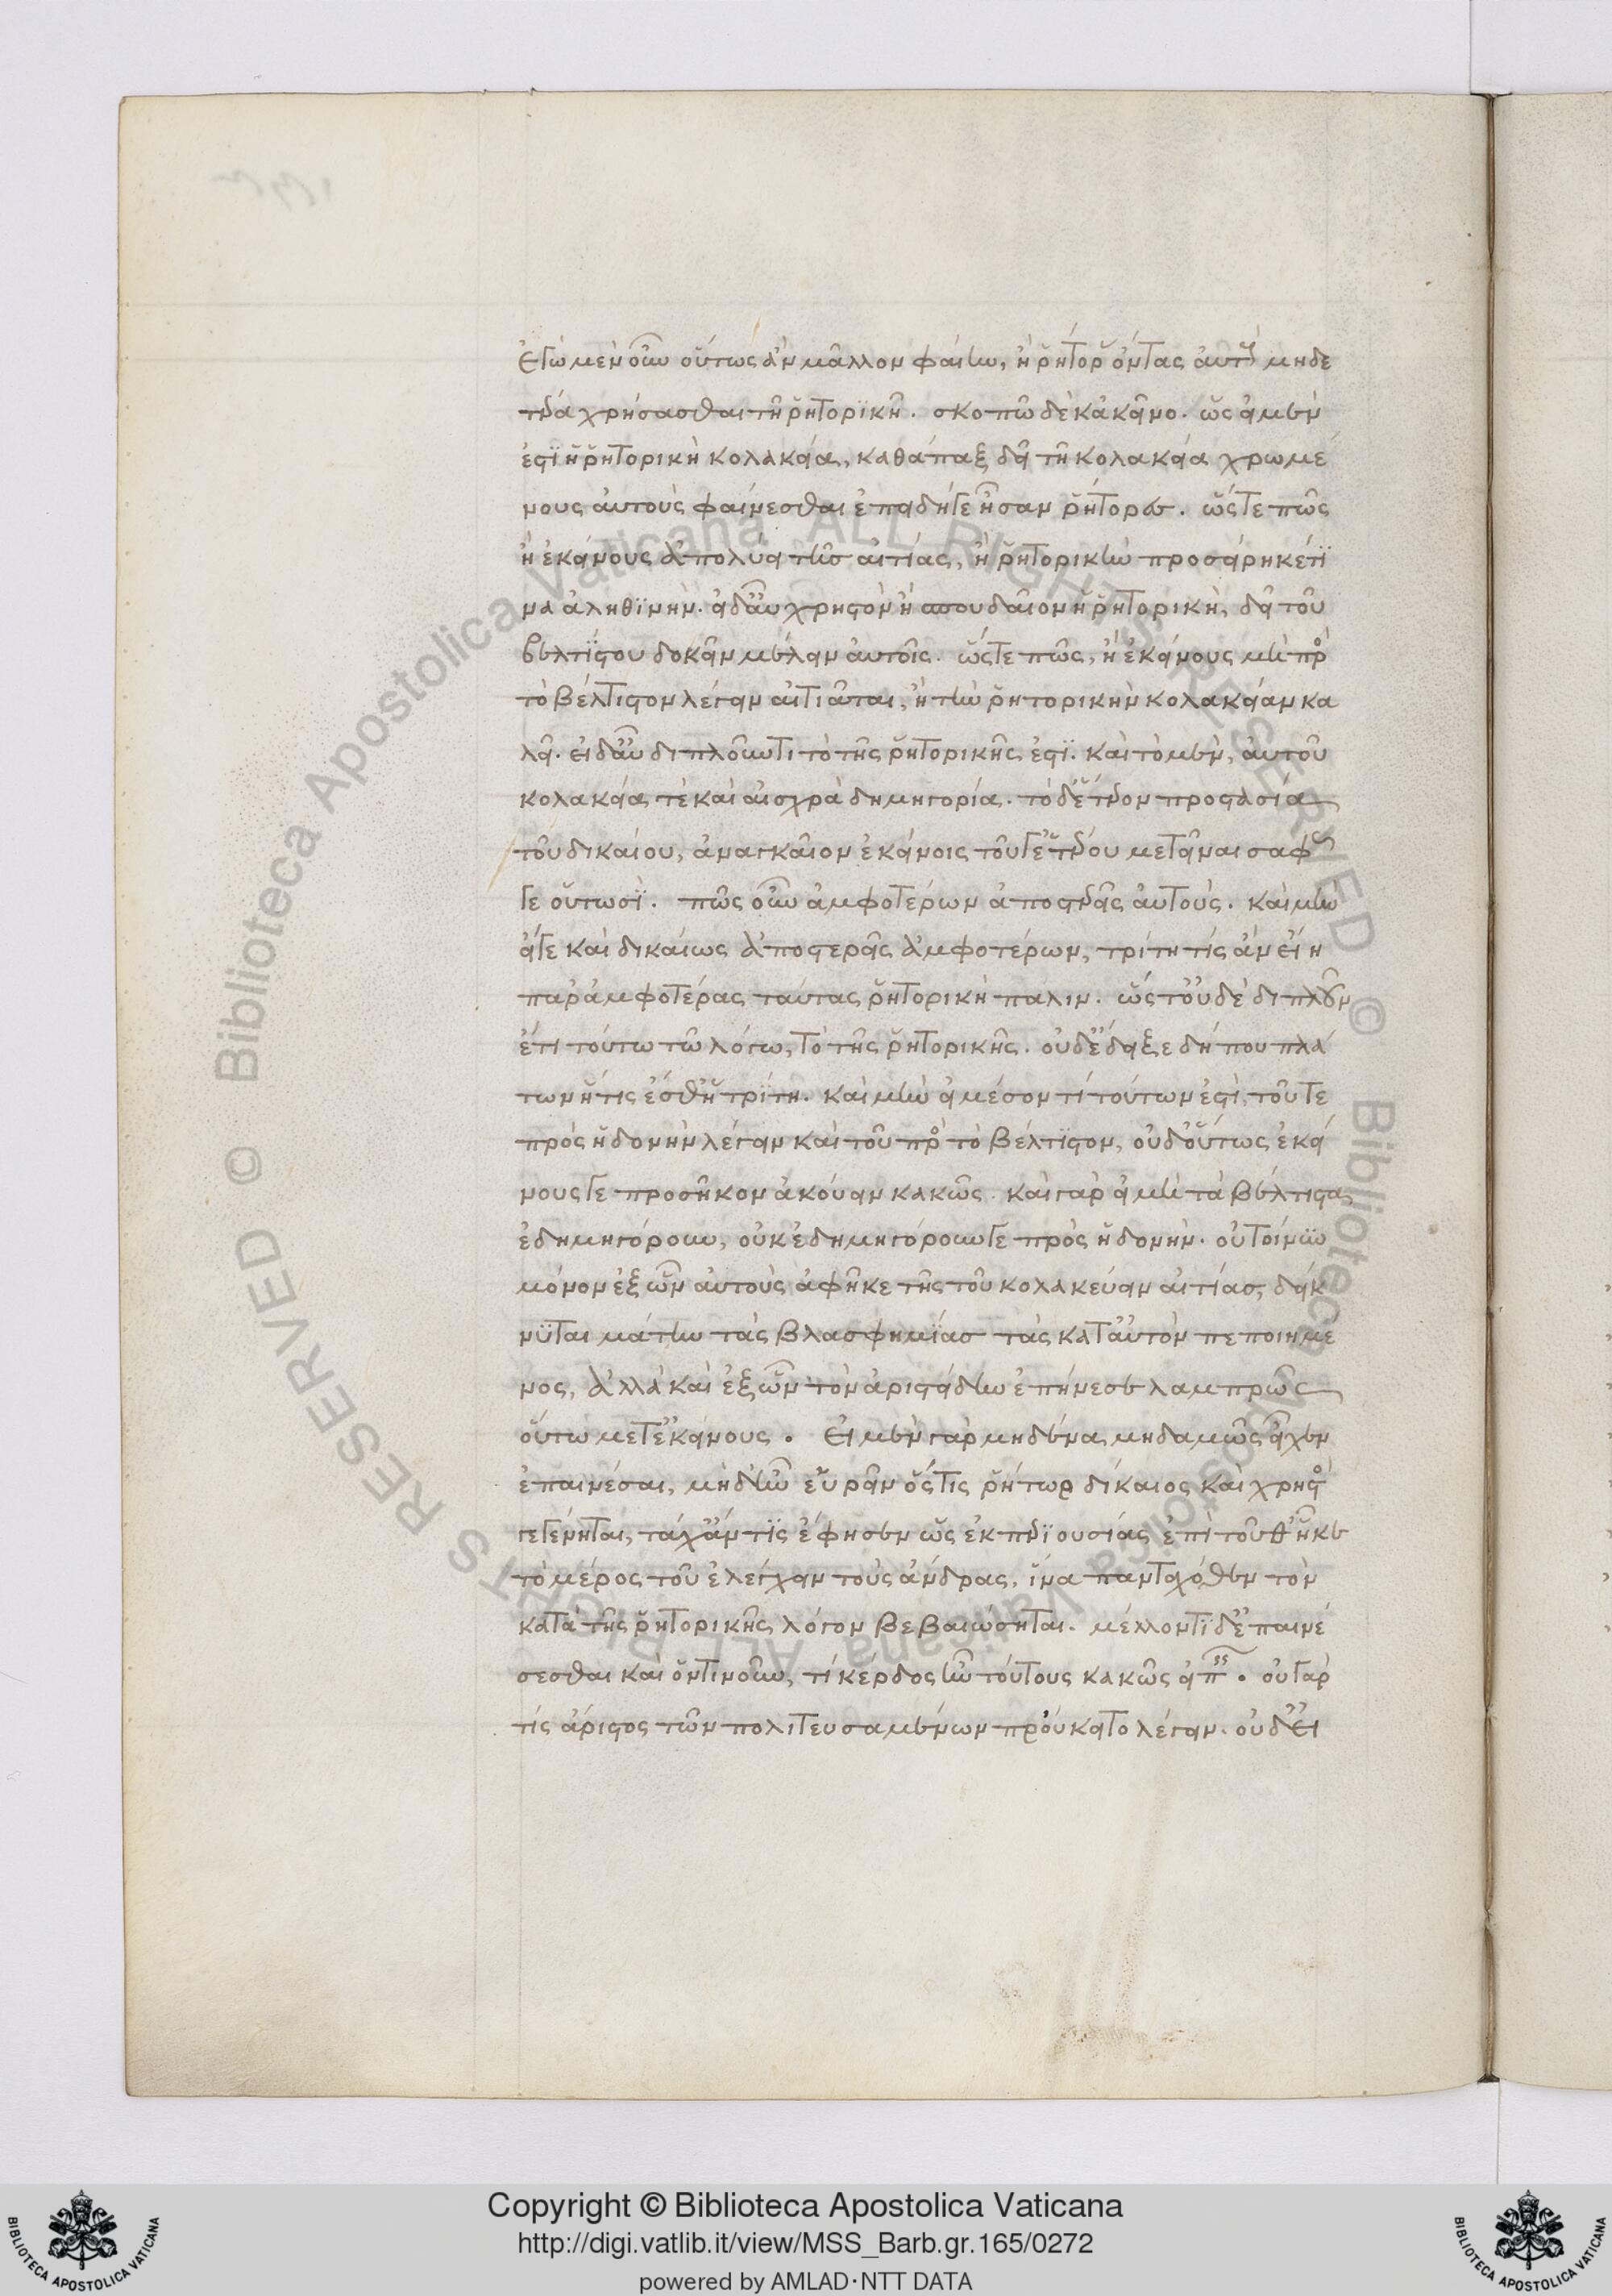 ἐγὼ μὲν οὖν οὕτως ἂν μᾶλλον φαίην, ἢ ῥήτορας ὄντας αὐτοὺς μηδε
τέρα χρήσασθαι τῆ ῥητορϊκῆ. σκοπῶ δὲ κἀκεῖνο. ὡς εἰ μὲν
ἐστϊ ἡ ῥητορικὴ κολακεία, καθάπαξ δεῖ τῆ κολακεία χρωμέ
νους αὐτοὺς φαίνεσθαι ἐπειδήγε ἦσαν ῥήτορες. ὥστε πῶς
ἢ ἐκείνους ἀπολύει τῆς αἰτίας, ἢ ῥητορικὴν προσείρηκέ τϊ
να ἀληθϊνὴν. εἰ δ' αὖ χρηστὸν ἢ σπουδαῖον ἡ ῥητορικὴ, δεῖ τοῦ
βελτϊστου δοκεῖν μέλειν αὐτοῖς. ὥστε πῶς, ἢ ἐκείνους μὴ πρὸς
τὸ βέλτιστον λέγειν αἰτιᾶται, ἢ τὴν ῥητορικὴν κολακείαν κα
λεῖ. εἰ δ' αὖ διπλοῦν τι τὸ τῆς ῥητορικῆς ἐστϊ. καὶ τὸ μὲν, αὐτοῦ
κολακεία τὲ καὶ αἰσχρὰ δημηγορία. τὸ δ' ἕτερον προστασία
τοῦ δικαίου, ἀναγκαῖον ἐκείνοις τοῦ γ' ἑτέρου μετεῖναι σαφῶς
γε οὑτωσῒ. πῶς οὖν ἀμφοτέρων ἀποστερεῖς αὐτούς. καὶ μὴν
εἴγε καὶ δικαίως ἀποστερεῖς ἀμφοτέρων, τρίτη τίς ἂν εἴη
παρ' ἀμφοτέρας ταύτας ῥητορικὴ πάλιν. ὥστ' οὐδὲ διπλοῦν
ἔτι τούτω τῶ λόγω, τὸ τῆς ῥητορικῆς. οὐδ' ἔδειξε δήπου πλά
των ἥτις ἔσθ' ἡ τρϊτη. καὶ μὴν εἰ μέσον τί τούτων ἐστὶ, τοῦ τε
πρὸς ἡδονὴν λέγειν καὶ τοῦ πρὸς τὸ βέλτϊστον, οὐδ' οὕτως ἐκεί
νους γε προσῆκον ἀκούειν κακῶς. καὶ γὰρ εἰ μὴ τὰ βέλτιστα
ἐδημηγόρουν, οὐκ ἐδημηγόρουν γε πρὸς ἡδονήν. οὐ τοίνϋν
μόνον ἐξ ὧν αὐτοὺς ἀφῆκε τῆς τοῦ κολακεύειν αἰτίας, δείκ
νϋται μάτην τὰς βλασφημϊας τὰς κατ' αὐτὸν πεποιημέ
νος, ἀλλὰ καὶ ἐξ ὧν τὸν ἀριστείδην ἐπήνεσε λαμπρῶς
οὕτω μετ' ἐκείνους. Εἰ μὲν γὰρ μηδένα μηδαμῶς εἶχεν
ἐπαινέσαι, μηδ' ἦν εὑρεῖν ὅστις ῥήτωρ δίκαιος καὶ χρηστὸς
γεγένηται, τάχ' ἄν τϊς ἔφησεν ὡς ἐκ περϊουσίας ἐπὶ τοῦθ' ἧκε
τὸ μέρος τοῦ ἐλέγχειν τοὺς ἄνδρας, ἵνα πανταχόθεν τὸν
κατὰ τῆς ῥητορικῆς λόγον βεβαιώσηται. μέλλοντϊ δ' ἐπαινέ
σεσθαι καὶ ὁντινοῦν, τί κέρδος ἦν τούτους κακῶς εἰπεῖν. οὐ γὰρ
τίς ἄριστος τῶν πολιτευσαμένων προύκειτο λέγειν. οὐδ' εἰ
Copyright © Biblioteca Apostolica Vaticana
http://digi.vatlib.it/view/MSS_Barb.gr.165/0272
powered by AMLAD·NTT DATA
BIBLIOTECA APOSTOLICA VATICANA
BIBLIOTECA APOSTOLICA VATICANA
© Biblioteca Apostolica Vaticana ALL RIGHTS RESERVED
© Biblioteca Apostolica Vaticana ALL RIGHTS RESERVED